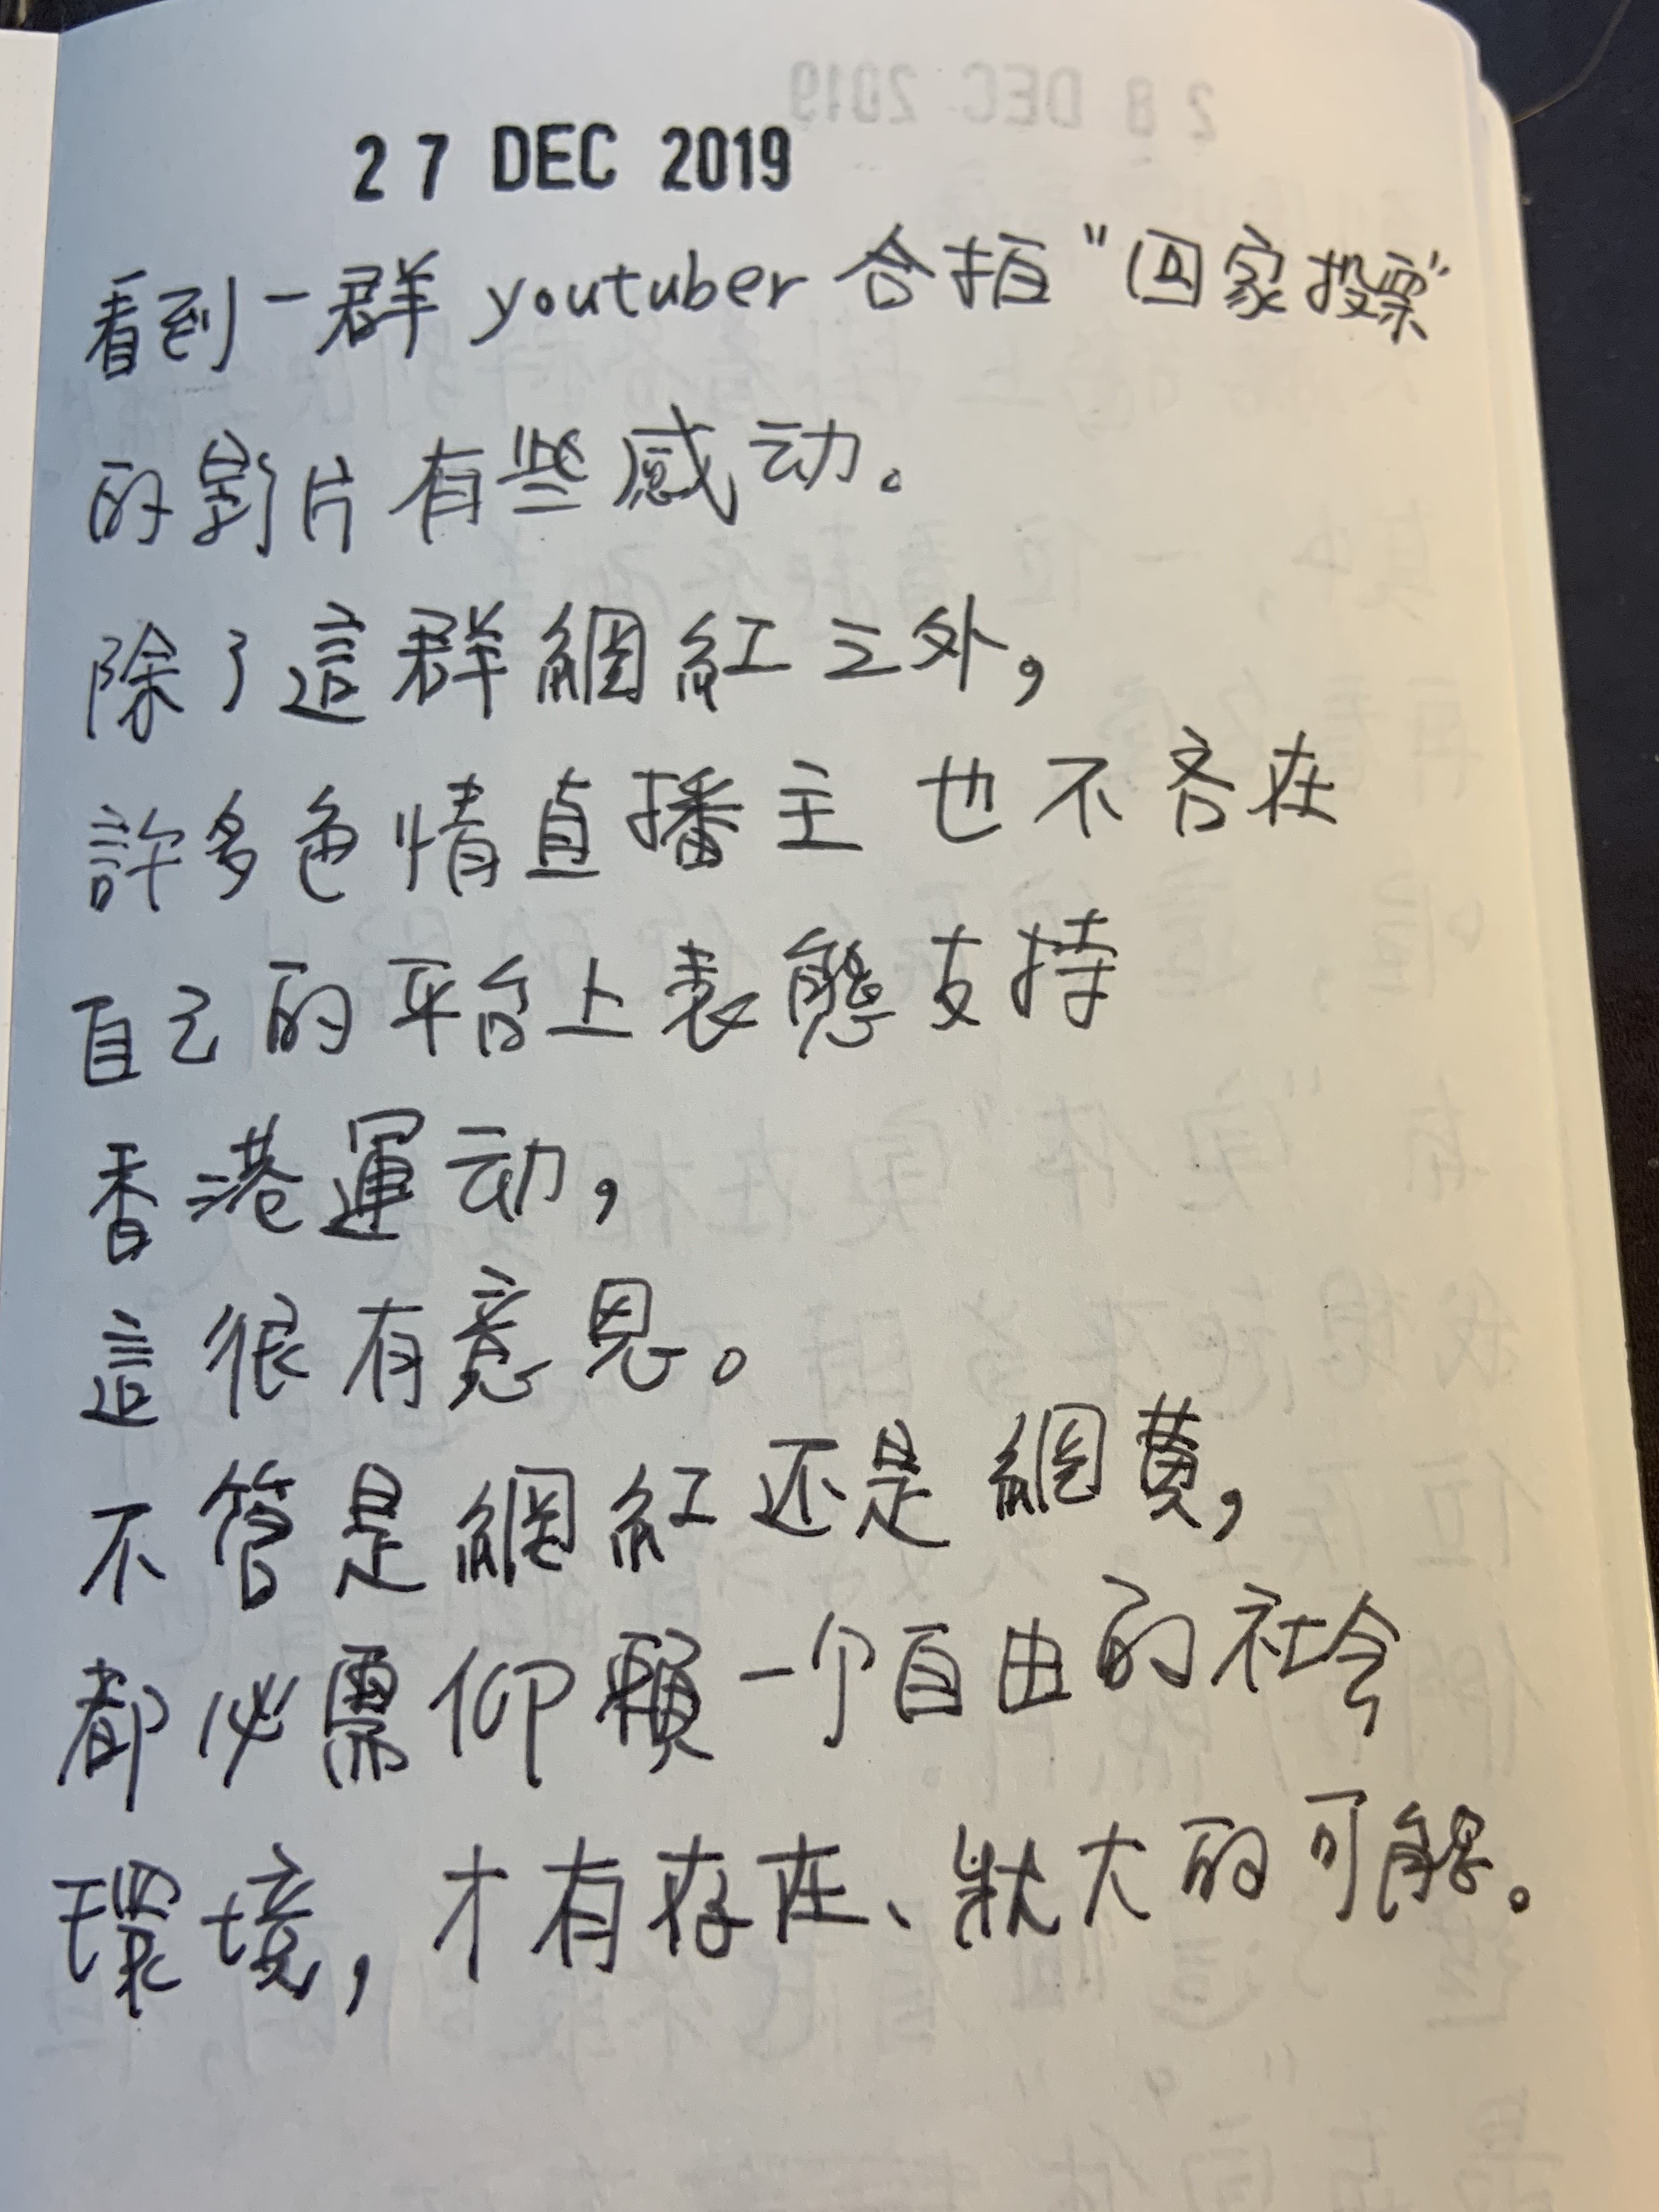 27 DEC 2019
看到一群 youtuber 合拍 "回家投票"
的影片有些感动。
除了這群網紅之外，
許多色情直播主也不吝在
自己的平台上表態支持
香港運动，
這很有意思。
不管是網紅还是網黄，
都必需仰賴一个自由的社会
環境，才有存在、壯大的可能。
28 DEC 2019